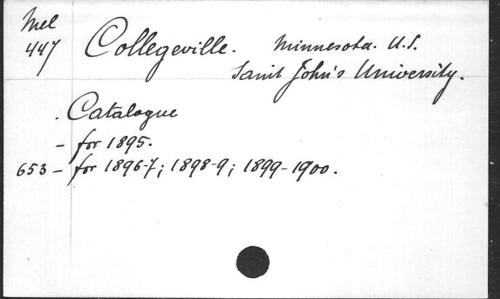 Mel
447
Collegeville. Minnesota. U.S.
Saint John's University.
. Catalogue
- for 1895.
653 - for 1896-7; 1898-9; 1899-1900.